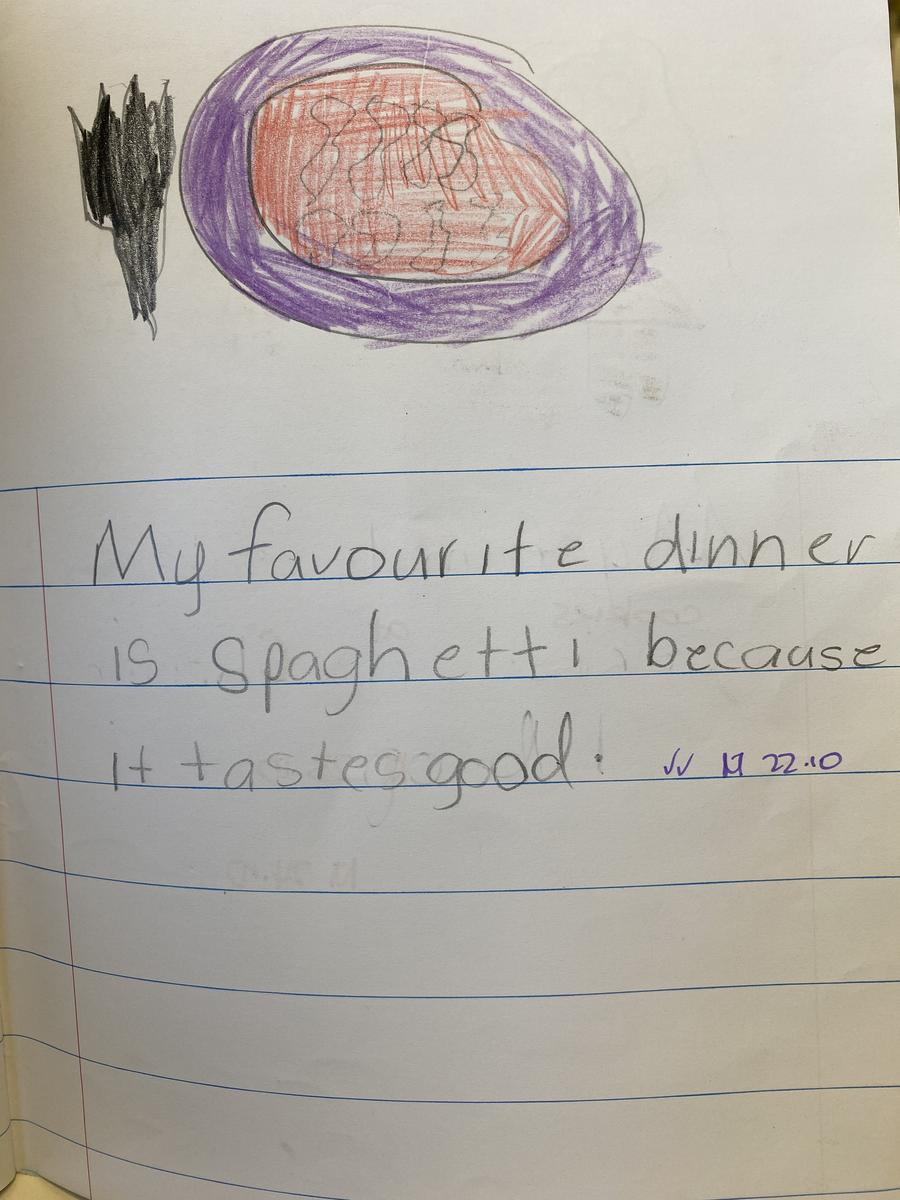 My favourite dinner
is spaghetti because
it tastes good.
22.10